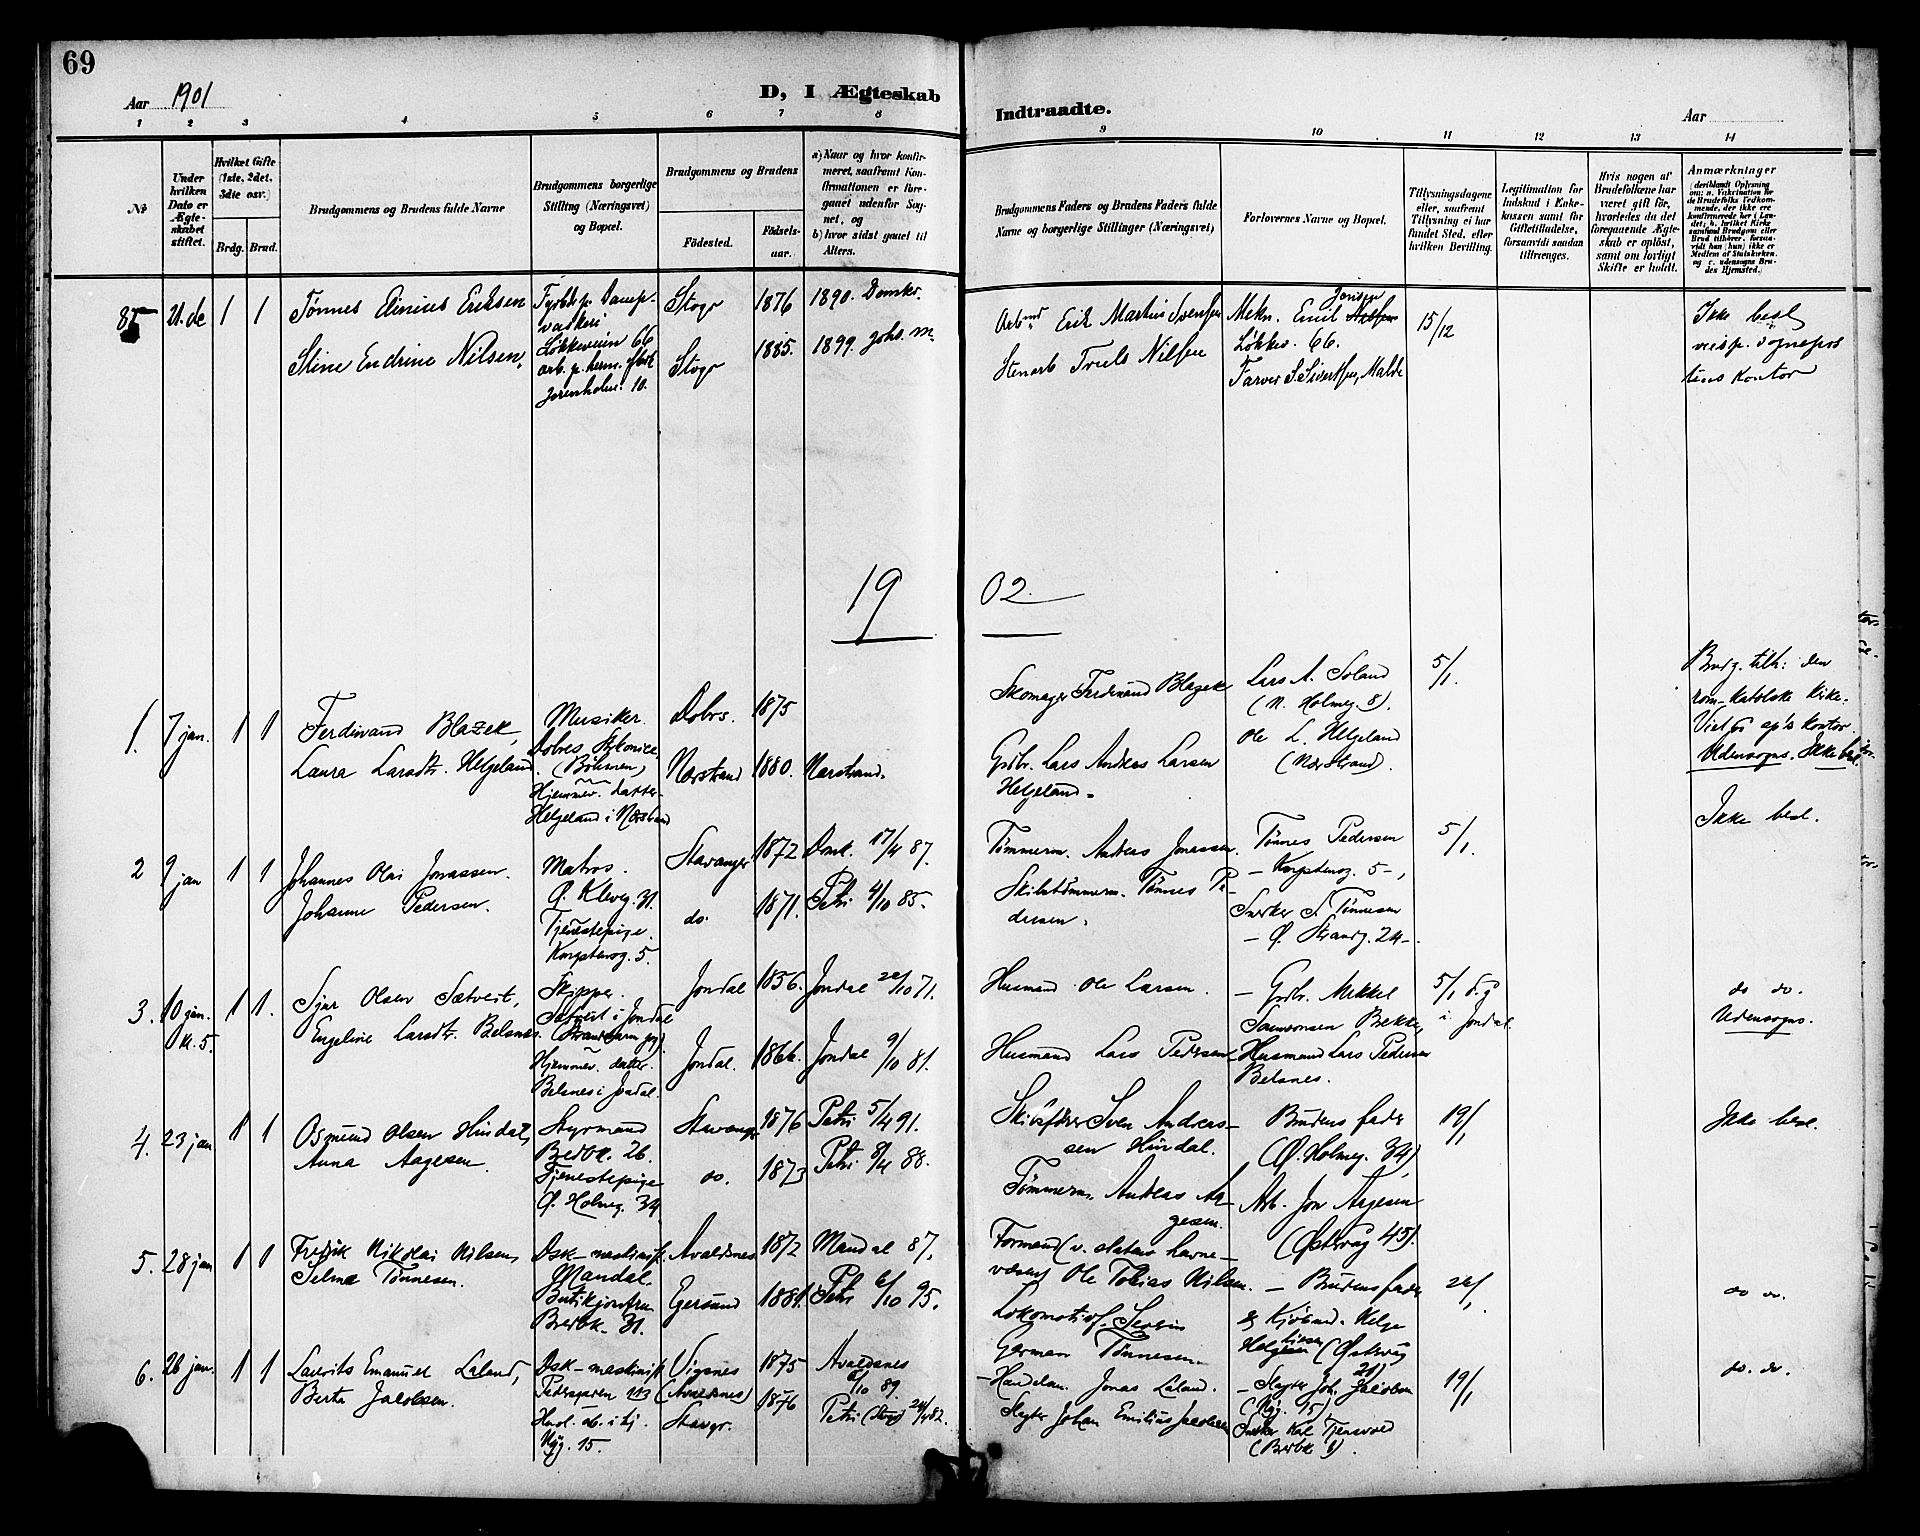 69
Aar 1901
D, I Ægteskab
Indtraadte.
Aar
1 2 3 4 5 6 7 8 9 10 11 12 13 14
No
Under hvilken Dato er Ægteskabet stiftet.
Hvilket Gifte (1ste, 2det, 3die osv.)
Brdg. Brud.
Brudgommens og Brudens fulde Navne
Brudgommens borgerlige Stilling (Næringsvei) og Bopæl.
Brudgommens og Brudens
Fødested.
Fødselsaar.
a) Naar og hvor konfirmeret, saafremt Konfirmationen er foregaaet udenfor Sognet, og
b) hvor sidst gaaet til Alters.
Brudgommens Faders og Brudens Faders fulde Navne og borgerlige Stillinger (Næringsvei)
Forlovernes Navne og Bopæl.
Tillysningsdagene eller, saafremt Tillysning ei har fundet Sted, efter hvilken Bevilling.
Legitimation for Indskud i Enkekassen samt for Giftetilladelse, forsaavidt saadan tiltrænges.
Hvis nogen af Brudefolkene har været gift før, hvorledes da det foregaaende Ægteskab er opløst, samt om lovligt Skifte er holdt.
Anmærkninger
85 21. de 1 1
Tønnes Elinius Eriksen
Stine Endrine Nilsen,
Fyrbøder p. Damp-
vaskeri
Løkkeveien 66
arb. p. herm. fabr.
Jorenholm. 10.
Stvgr 1876 1890. Domkr.
Stvgr 1885. 1899. Johs. m.
Arbmd Erik Martius Svensen
Stenarb Truels Nilsen
Mekn. Emil Jensen
Løkkev. 66.
Farver S. Sivertsen, Malde
15/12
Ikke besl
vesp. sogneprestens Kontor
19 02.
1. 7 jan. 1 1
Ferdinand Blazek,
Laura Larsdtr. Helgeland.
Musiker.
(Böhmen)
Hjemmev. datter
Helgeland i Nærstrand
Dobrs. 1875
Nærstrand 1880. Nærstrand.
Skomager Ferdinand Blazek
Grdbr. Lars Andreas Larsen
Helgeland.
Lars A. Soland
(N. Holmeg. 8).
Ole L. Helgeland
(Nærstrand).
5/1.
Brudg. tilh. den
rom-katolske kirke.
Viet på sp's kontor.
Udensogns. Ikke besl.
2 9 jan 1 1
Johannes Olai Jonassen.
Johanne Pedersen.
Matros.
Ø. Kleveg. 31.
Tjenestepige.
Kongstensg. 5.
Stavanger 1872 Domk. 17/4 87.
do. 1871. Petri 4/10 85.
Tømmerm. Andreas Jonassen.
Skibstømmerm. Tønnes Pe-
dersen.
Tønnes Pedersen
- Kongstensg. 5 -,
Snekker S. Tønnesen
- Ø. Strandg. 24 -.
5/1.
Ikke besl.
3. 10 jan. 1 1.
kl. 5.
Sjur Olsen Sætveit,
Engeline Larsdtr. Belsnes.
Skipper.
Sætveit i Jondal
Hjemmev. datter.
Belsnes i Jondal.
Jondal 1856. Jondal 22/10 71.
Jondal. 1866. Jondal 9/10 81.
Husmand Ole Larsen.
Husmand Lars Pedersen
- Grdbr. Mikkel
Samsonsen Bekke,
Husmand Lars Pedersen
Belsnes.
5/1 d. g.
i Jondal.
do do.
Udensogns.
4. 23 jan 1 1
Osmund Olsen Hindal,
Anna Aagesen.
Styrmand
Bredbk. 26.
Tjenestepige
Ø. Holmeg. 34
Stavanger 1876 Petri 5/4 91.
do. 1873 Petri 8/4 88.
Skibsfører Sven Andreas-
sen Hindal.
Tømmerm. Andreas Aa-
gesen.
Brudens fader
(Ø. Holmeg. 34),
Arb. Jon Aagesen
(Østervåg 45).
19/1
Ikke besl.
5. 28 jan 1 1
Fredrik Nikolai Nilsen,
Selma Tønnesen.
Dsk-maskinist.
Mandal.
Butikjomfru
Bredbk. 31.
Avaldsnes 1872 Mandal 87.
Egersund 1881. Petri 6/10 95.
Formand (v. statens havne-
væsen) Ole Tobias Nilsen.
Lokomotivf. Severin
German Tønnesen.
- Brudens fader
& Kjøbmd. Helge
Helgesen (Østervåg
21)
26/1.
do do.
6. 26 jan. 1 1
Laurits Emanuel Laland,
Berta Jacobsen.
Dsk-maskinist.
Pedersgaden 113
Nyg. 15.
Vigsnes 1875 Avaldsnes
(Avaldsnes) 6/10 89.
Stavgr. 1876 Petri (Stvgr)
- Handelsm. Jonas Laland.
Slagter Johan Emilius Jacobsen
- Slagter Joh. Jacobsen
(Nyg. 15)
Snekker Karl Tjensvold
(Bredbk 1).
19/1
do. do.